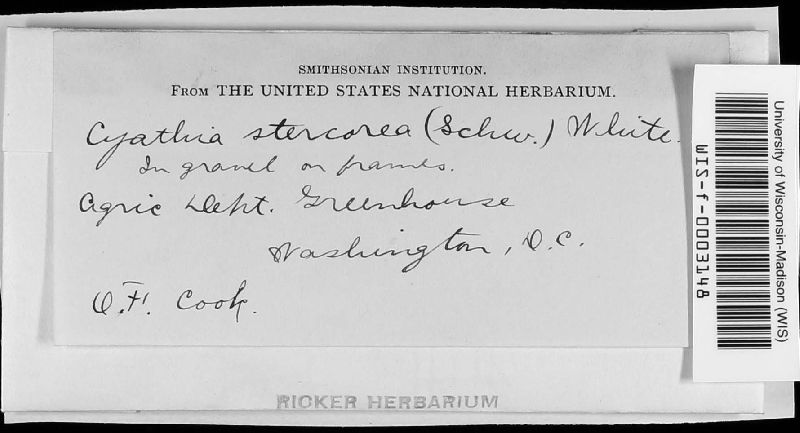 SMITHSONIAN INSTITUTION.
FROM THE UNITED STATES NATIONAL HERBARIUM.
Cyathia stercorea (Schw.) White.
In gravel on frames.
Agric Dept. Greenhouse
Washington, D.C.
O.F. Cook.
RICKER HERBARIUM
University of Wisconsin-Madison (WIS)
WIS-f-0003148